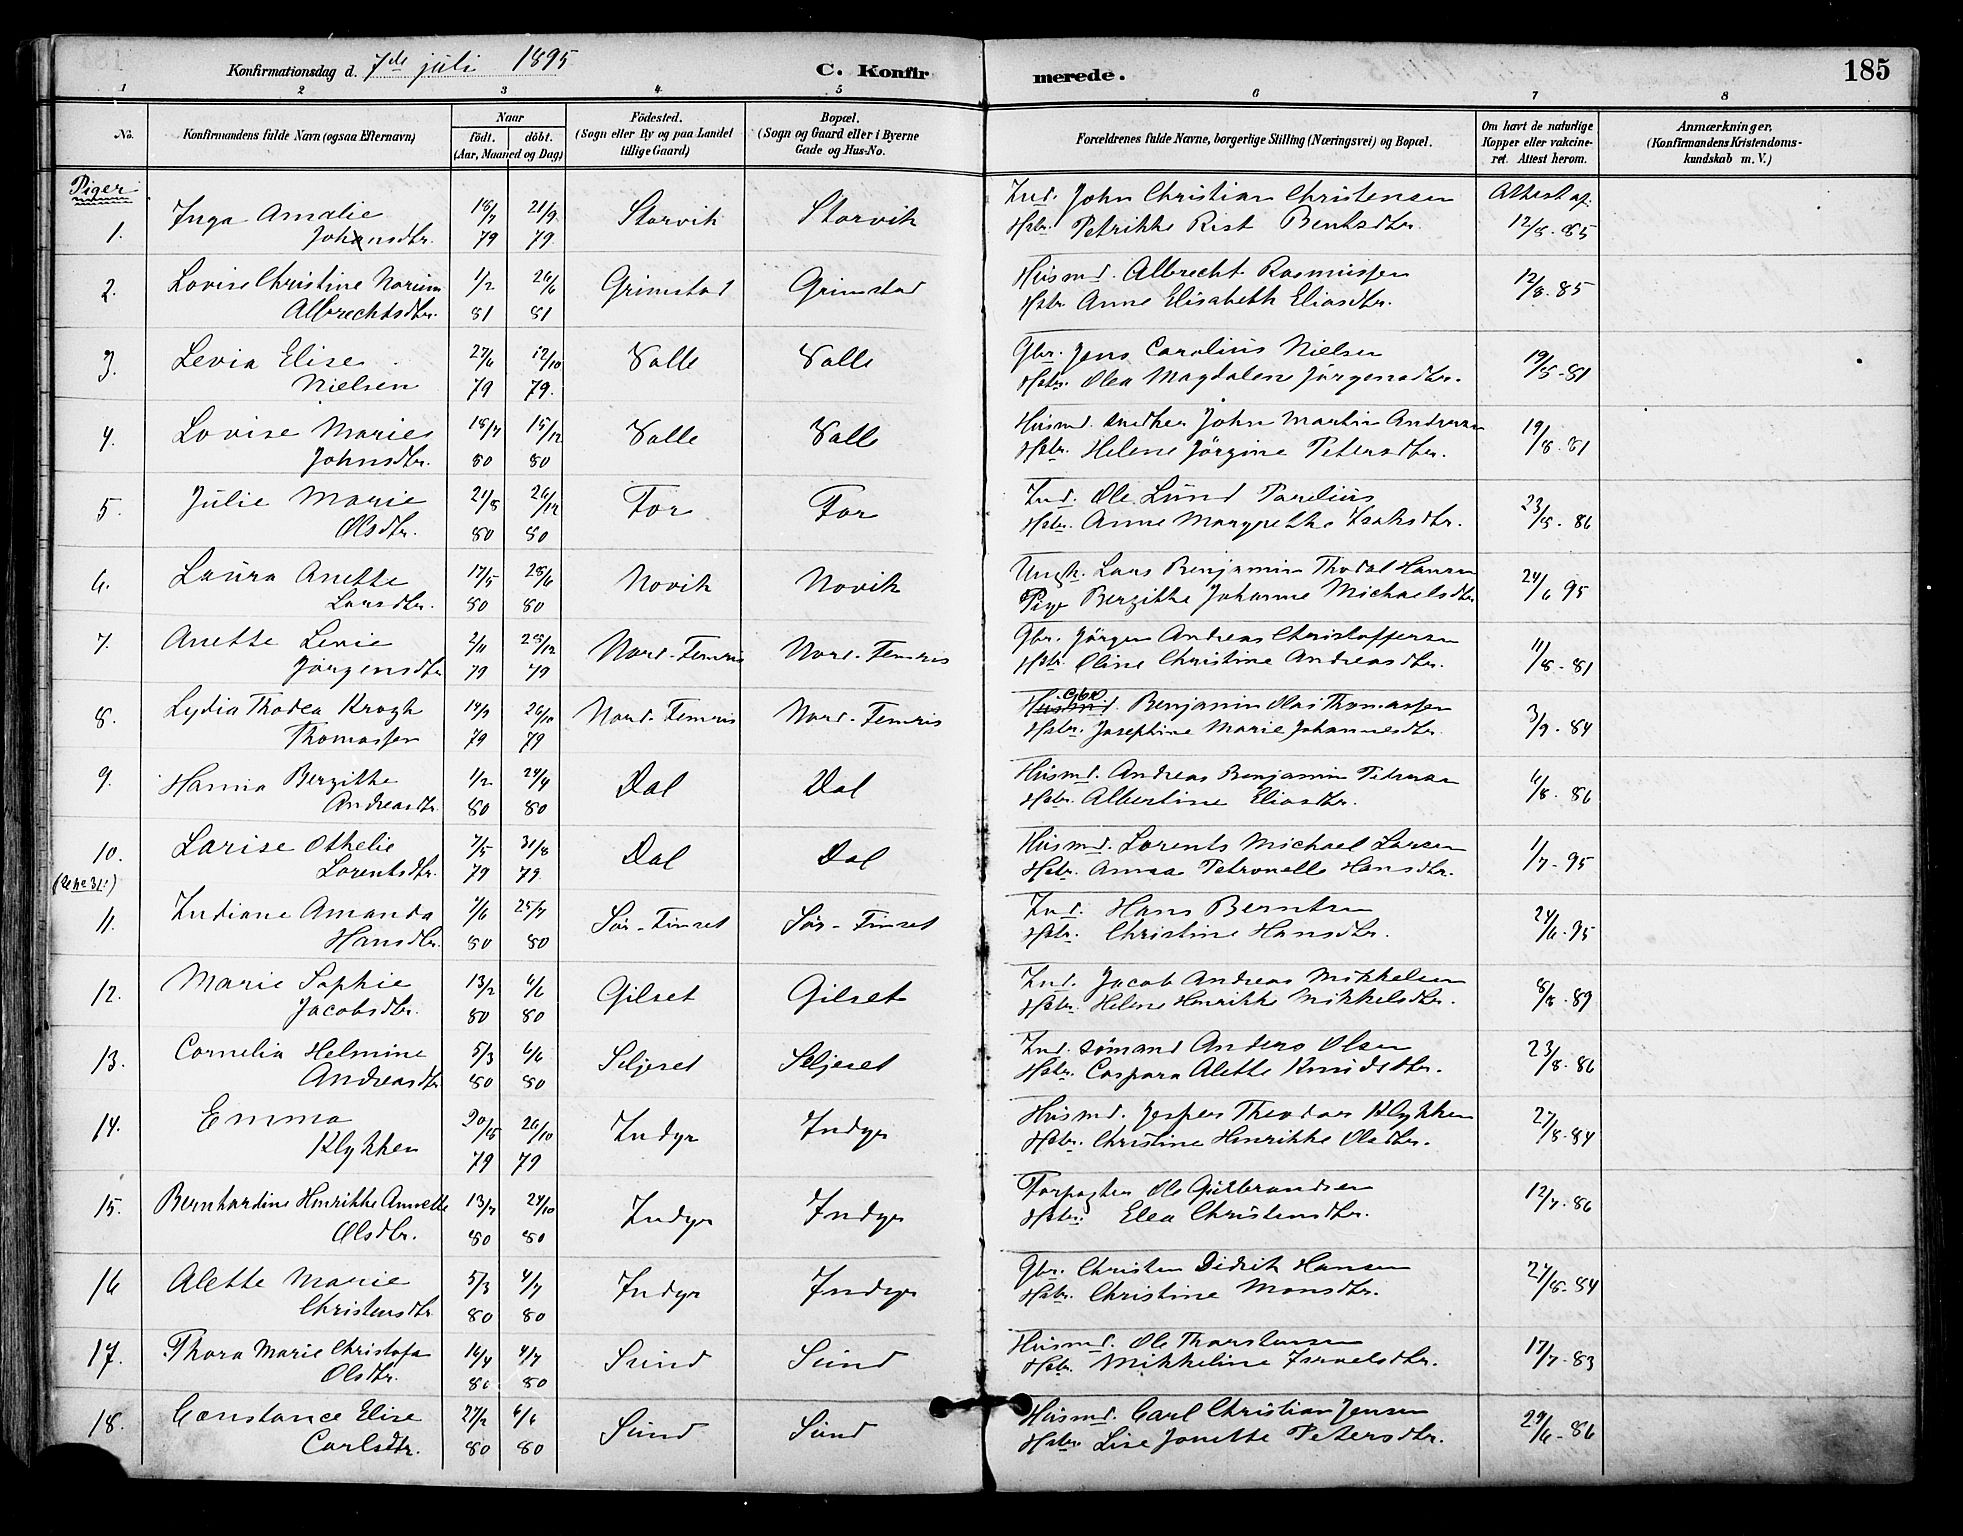 Konfirmationsdag d. 7de juli 1895
C. Konfirmerede.
185
1 2 3 4 5 6 7 8
No.
Konfirmandens fulde Navn (ogsaa Efternavn)
Naar
födt. döbt.
(Aar, Maaned og Dag)
Födested.
(Sogn eller By og paa Landet
tillige Gaard)
Bopæl.
(Sogn og Gaard eller i Byerne
Gade og Hus-No.
Forældrenes fulde Navne, borgerlige Stilling (Næringsvei) og Bopæl.
Om havt de naturlige
Kopper eller vakcine-
ret. Attest herom.
Anmærkninger.
(Konfirmandens Kristendoms-
kundskab m. V.)
Piger
1. Inga Amalie 18/7 21/9 Storvik Storvik Ind. John Christian Christensen Attest af
Johansdtr. 79 79 Hstr. Petrikke Rist Bentsdtr. 12/8-85
2. Lovise Christine 1/2 26/6 Grimstad Grimstad Husmd. Albrecht Rasmussen 12/8-85
Albrechtsdtr. 81 81 Hstr. Anne Elisabeth Eliasdtr.
3. Levia Elise 27/6 12/10 Valle Valle Gbr. Jens Carolius Nielsen 19/8-81
Nielsen 79 79. Hstr. Olea Magdalene Jörgensdtr.
4. Lovise Marie 18/7 15/12 Valle Valle Husmd. John Martin Andersen 19/8-81
Johnsdtr. 80 80 Hstr. Helene Jörgine Petersdtr.
5. Julie Marie 21/8 26/12 For For Ind. Ole Lund Parelius 23/8-86
Olsdtr. 80 80 Hstr. Anne Margrethe Isaksdtr.
6. Laura Anette 17/5 28/6 Novik Novik Ungk. Lars Benjamin Thodal Hansen 24/6 95
Larsdtr. 80 80 Pige Bergitte Johanne Michaelsdtr.
7. Anette Levie 2/11 28/12 Nord-Femris Nord-Femris Gbr. Jörgen Andreas Christoffersen 11/8-81
Jörgensdtr 79 79 Hstr. Oline Christine Andreasdtr.
8. Lydia Thodea Krogh 14/9 26/10 Nord-Femris Nord-Femris Gbr Benjamin Olai Thomassen 3/9-84
Thomassen 79 79 Hstr. Josephine Marie Johannesdtr.
9. Hanna Bergitte 1/2 24/4 Dal Dal Husmd. Andreas Benjamin Petersen 6/8-86
Andreasdtr. 80 80 Hstr. Albertine Eliasdtr.
10. Larise Othelie 7/5 31/8 Dal Dal Husmd. Lorents Michael Larsen 1/7-95
Lorentsdtr. 79 79 Hstr. Annaa Petronelle Hansdtr.
11. Indiane Amanda 25/7 Sör-Finset Sör-Finset Ind. Hans Berntsen 24/6-95
Hansdtr. 80 80 Hstr. Christine Hansdtr.
12. Marie Sophie 13/2 6/6 Gilset Gilset Ind. Jacob Andreas Mikkelsen 8/8-89
Jacobsdtr. 80 80 Hstr. Helene Henrikke Mikkelsdtr.
13. Cornelia Helmine 5/3 6/6 Seljeset Seljeset Ind. Sömand Anders Olsen 23/8-86
Andreasdtr 80 80 Hstr. Caspara Alette Knudsdtr.
14. Emma 20/8 26/10 Indyr Indyr Husmd. Jesper Theodor Klykken 27/8-84
Klykken 79 79 Hstr. Christine Henrikke Olsdtr.
15. Bernhardine Henrikke Annette 13/7 24/10 Indyr Indyr Forpagter Ole Gulbrandsen 12/7-86
Olsdtr. 80 80 Hstr. Elea Christensdtr.
16 Alette Marie 5/3 4/7 Indyr Indyr Gbr. Christen Didrik Hansen 27/8-84
Christensdtr 80 80 Hstr. Christine Monsdtr.
17. Thora Marie Christofa 16/4 4/7 Sund Sund Husmd. Ole Thorstensen 17/7-83
Olsdtr. 80 80 Hstr. Mikkeline Israelsdtr.
18. Constance Elise 27/2 6/6 Sund Sund Husmd. Carl Christian Jensen 29/6-86
Carlsdtr. 80 80 Hstr. Lise Jonette Petersdtr.